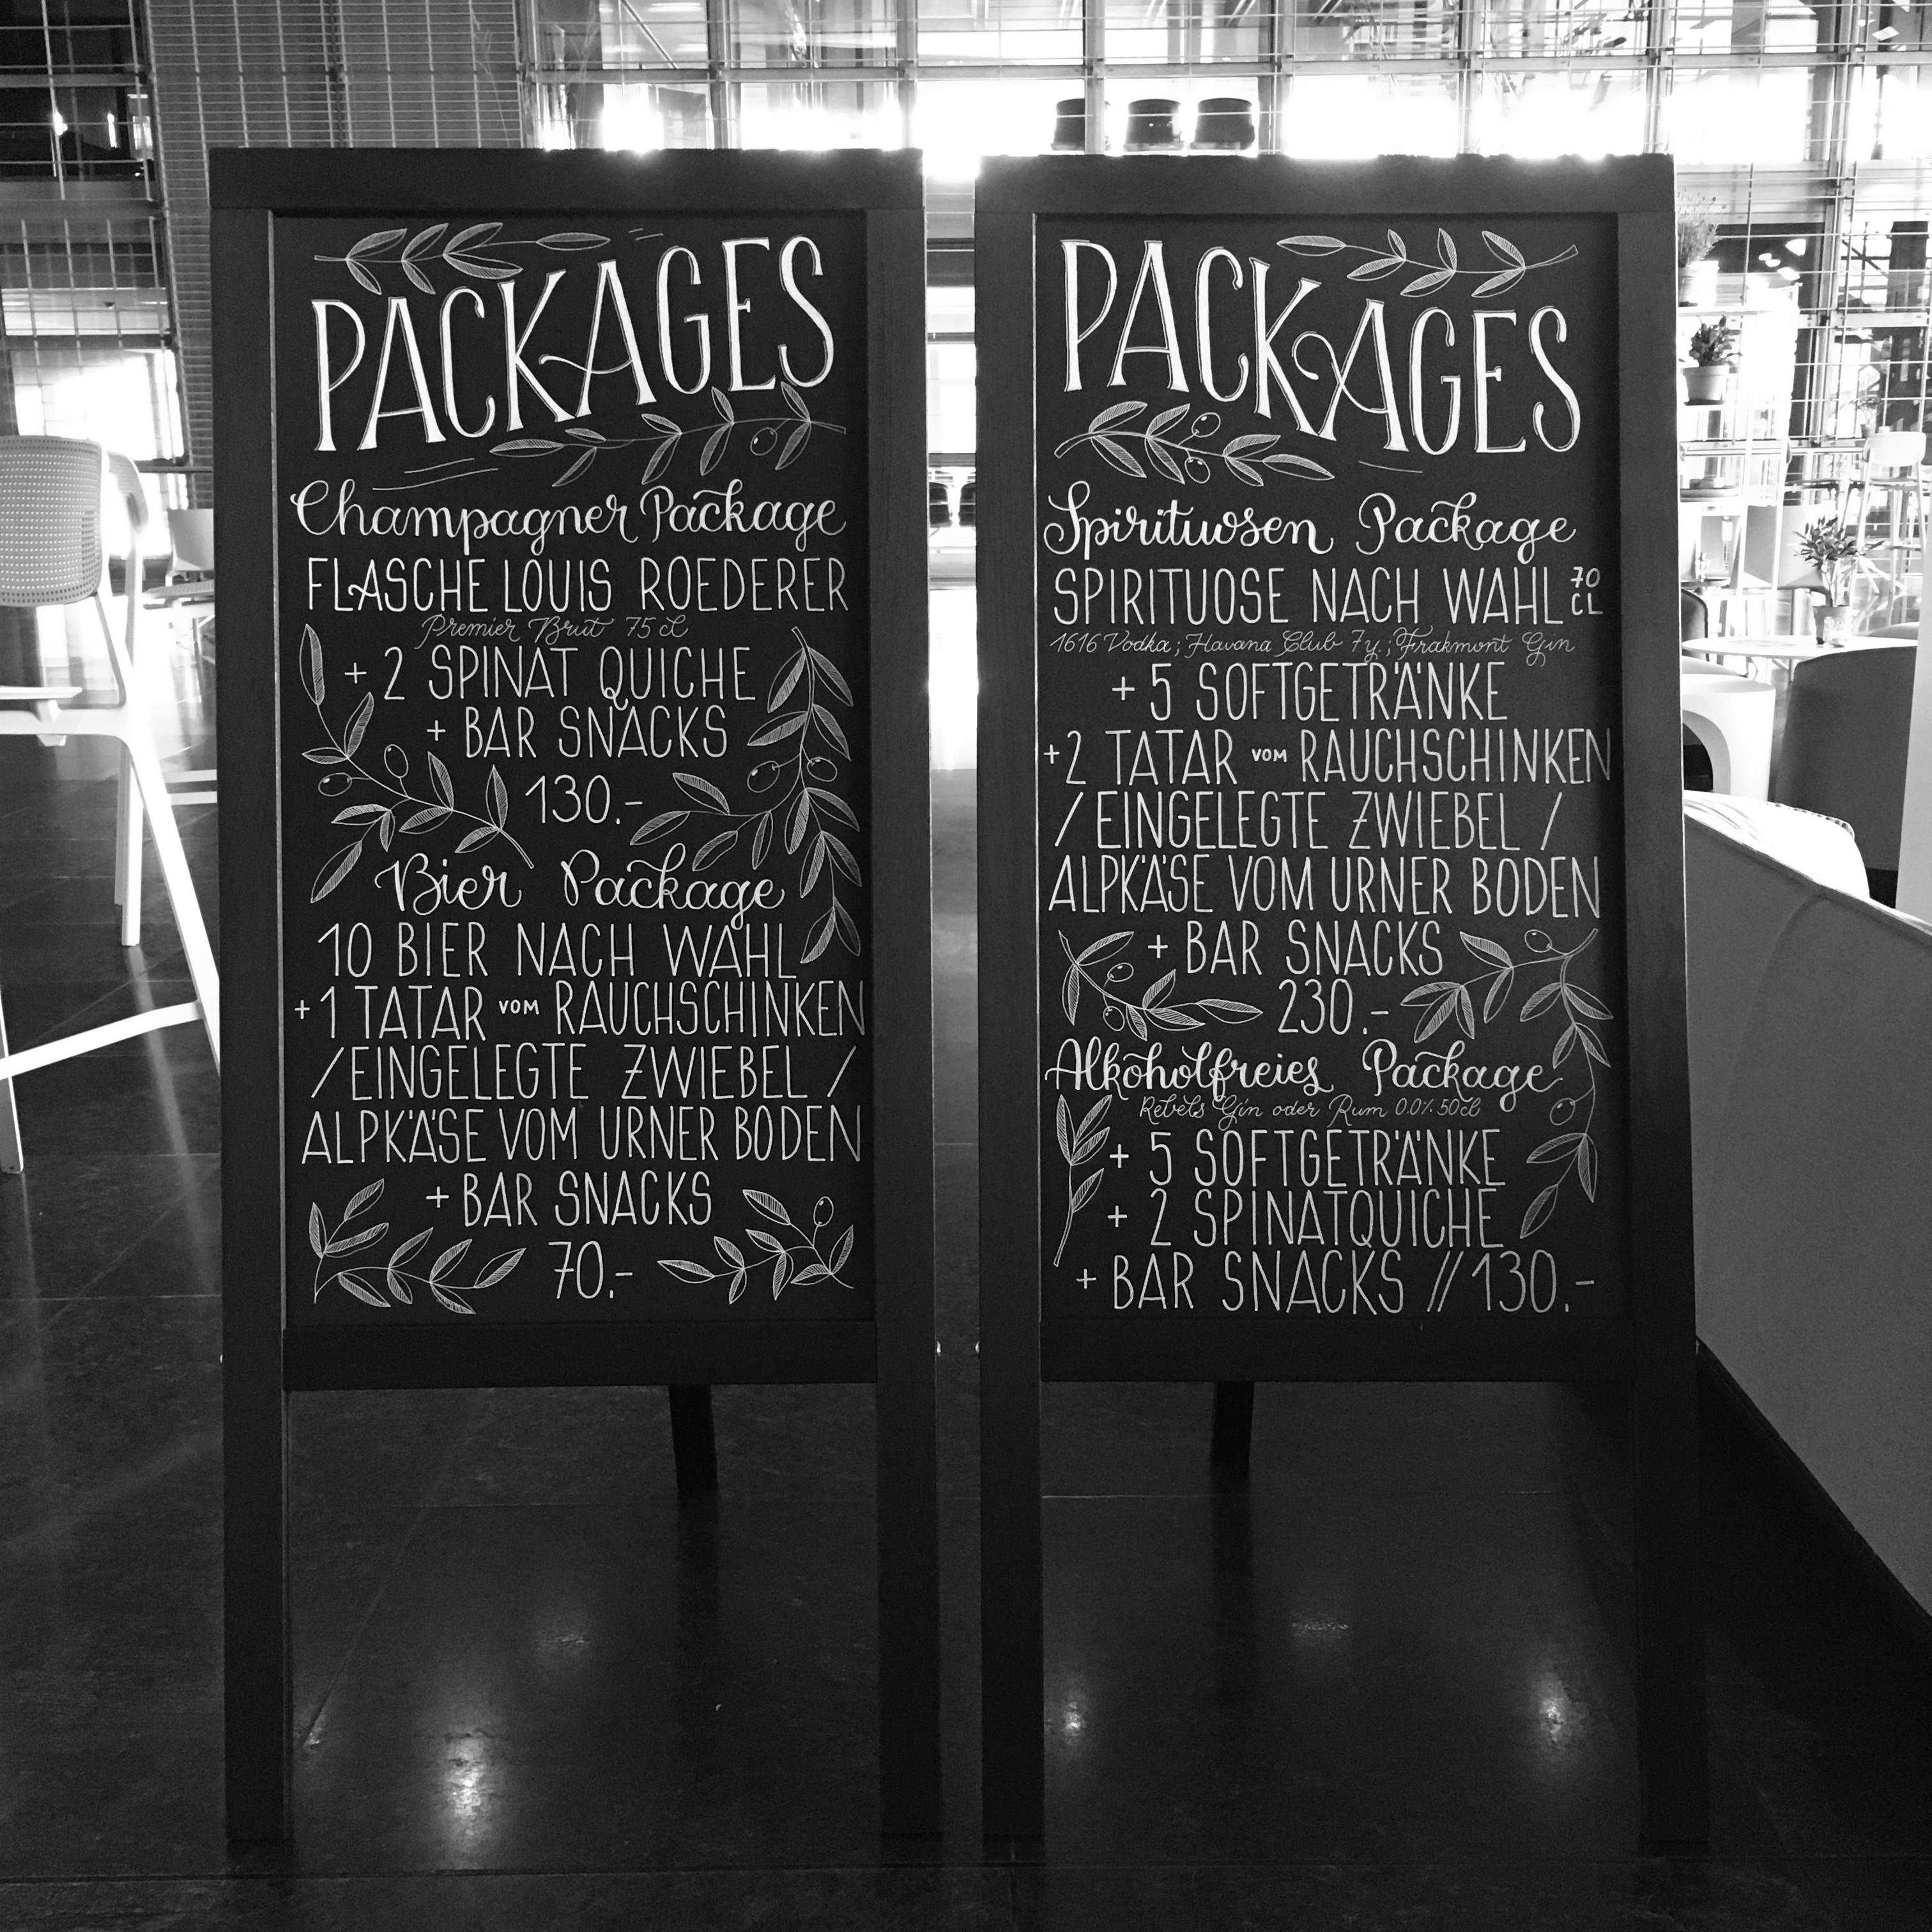 PACKAGES
Champagner Package
FLASCHE LOUIS ROEDERER
Premier Brut 75 cl
+ 2 SPINAT QUICHE
+ BAR SNACKS
130.-
Bier Package
10 BIER NACH WAHL
+1 TATAR VOM RAUCHSCHINKEN
/EINGELEGTE ZWIEBEL /
ALPKÄSE VOM URNER BODEN
+ BAR SNACKS
70.-
PACKAGES
Spirituosen Package
SPIRITUOSE NACH WAHL 70 CL
1616 Vodka; Havana Club 7y.; Trakmont Gin
+ 5 SOFTGETRÄNKE
+2 TATAR VOM RAUCHSCHINKEN
/ EINGELEGTE ZWIEBEL /
ALPKÄSE VOM URNER BODEN
+ BAR SNACKS
230.-
Alkoholfreies Package
Rebels Gin oder Rum 0.0% 50cl
+ 5 SOFTGETRÄNKE
+ 2 SPINATQUICHE
+ BAR SNACKS // 130.-